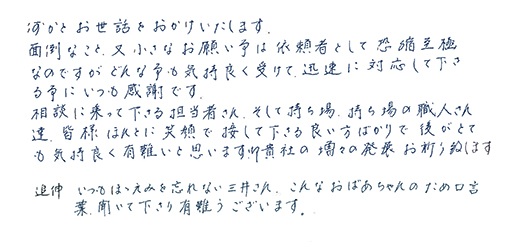 何かとお世話をおかけいたします。
面倒なこと、又小さなお願い事は依頼者として恐縮至極
なのですがどんな事も気持良く受けて、迅速に対応して下さ
る事にいつも感謝です。
相談に乗って下さる担当者さん、そして持ち場、持ち場の職人さん
達、皆様ほんとに笑顔で接して下さる良い方ばかりで後がとて
も気持良く有難いと思います。貴社の増々の発展お祈り致します
追伸 いつもほゝえみを忘れない三井さん、こんなおばあちゃんのため口言
葉、聞いて下さり有難うございます。